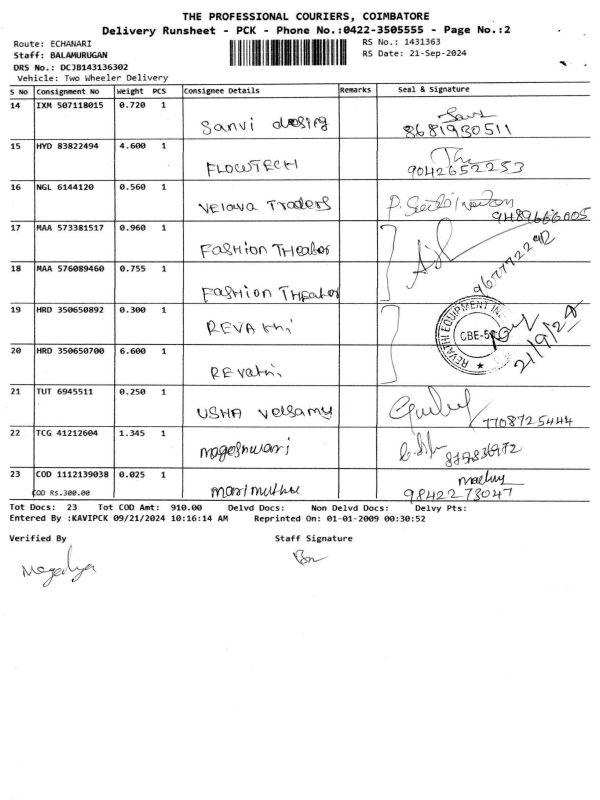 THE PROFESSIONAL COURIERS, COIMBATORE
Delivery Runsheet - PCK - Phone No.:0422-3505555 - Page No.:2
Route: ECHANARI
RS No.: 1431363
Staff: BALAMURUGAN
RS Date: 21-Sep-2024
DRS No.: DCJB143136302
Vehicle: Two Wheeler Delivery
S No Consignment No Weight PCS Consignee Details Remarks Seal & Signature
14 IXM 507118015 0.720 1 Sanvi desing
8681930511
15 HYD 83822494 4.600 1 FLOWTECH
9042652253
16 NGL 6144120 0.560 1 Velava Traders
9489666005
17 MAA 573381517 0.960 1 Fashion Theater
18 MAA 576089460 0.755 1 Fashion Theater
19 HRD 350650892 0.300 1 REVAthi
REVATHI EQUIPMENT
CBE-5
21/9/24
20 HRD 350650700 6.600 1 REvathi
21 TUT 6945511 0.250 1 USHA Velsamy
7708725444
22 TCG 41212604 1.345 1 mageshwari
23 COD 1112139038 0.025 1 marimuthu
COD Rs.300.00
9842273047
Tot Docs: 23 Tot COD Amt: 910.00 Delvd Docs: Non Delvd Docs: Delvy Pts:
Entered By :KAVIPCK 09/21/2024 10:16:14 AM Reprinted On: 01-01-2009 00:30:52
Verified By Staff Signature